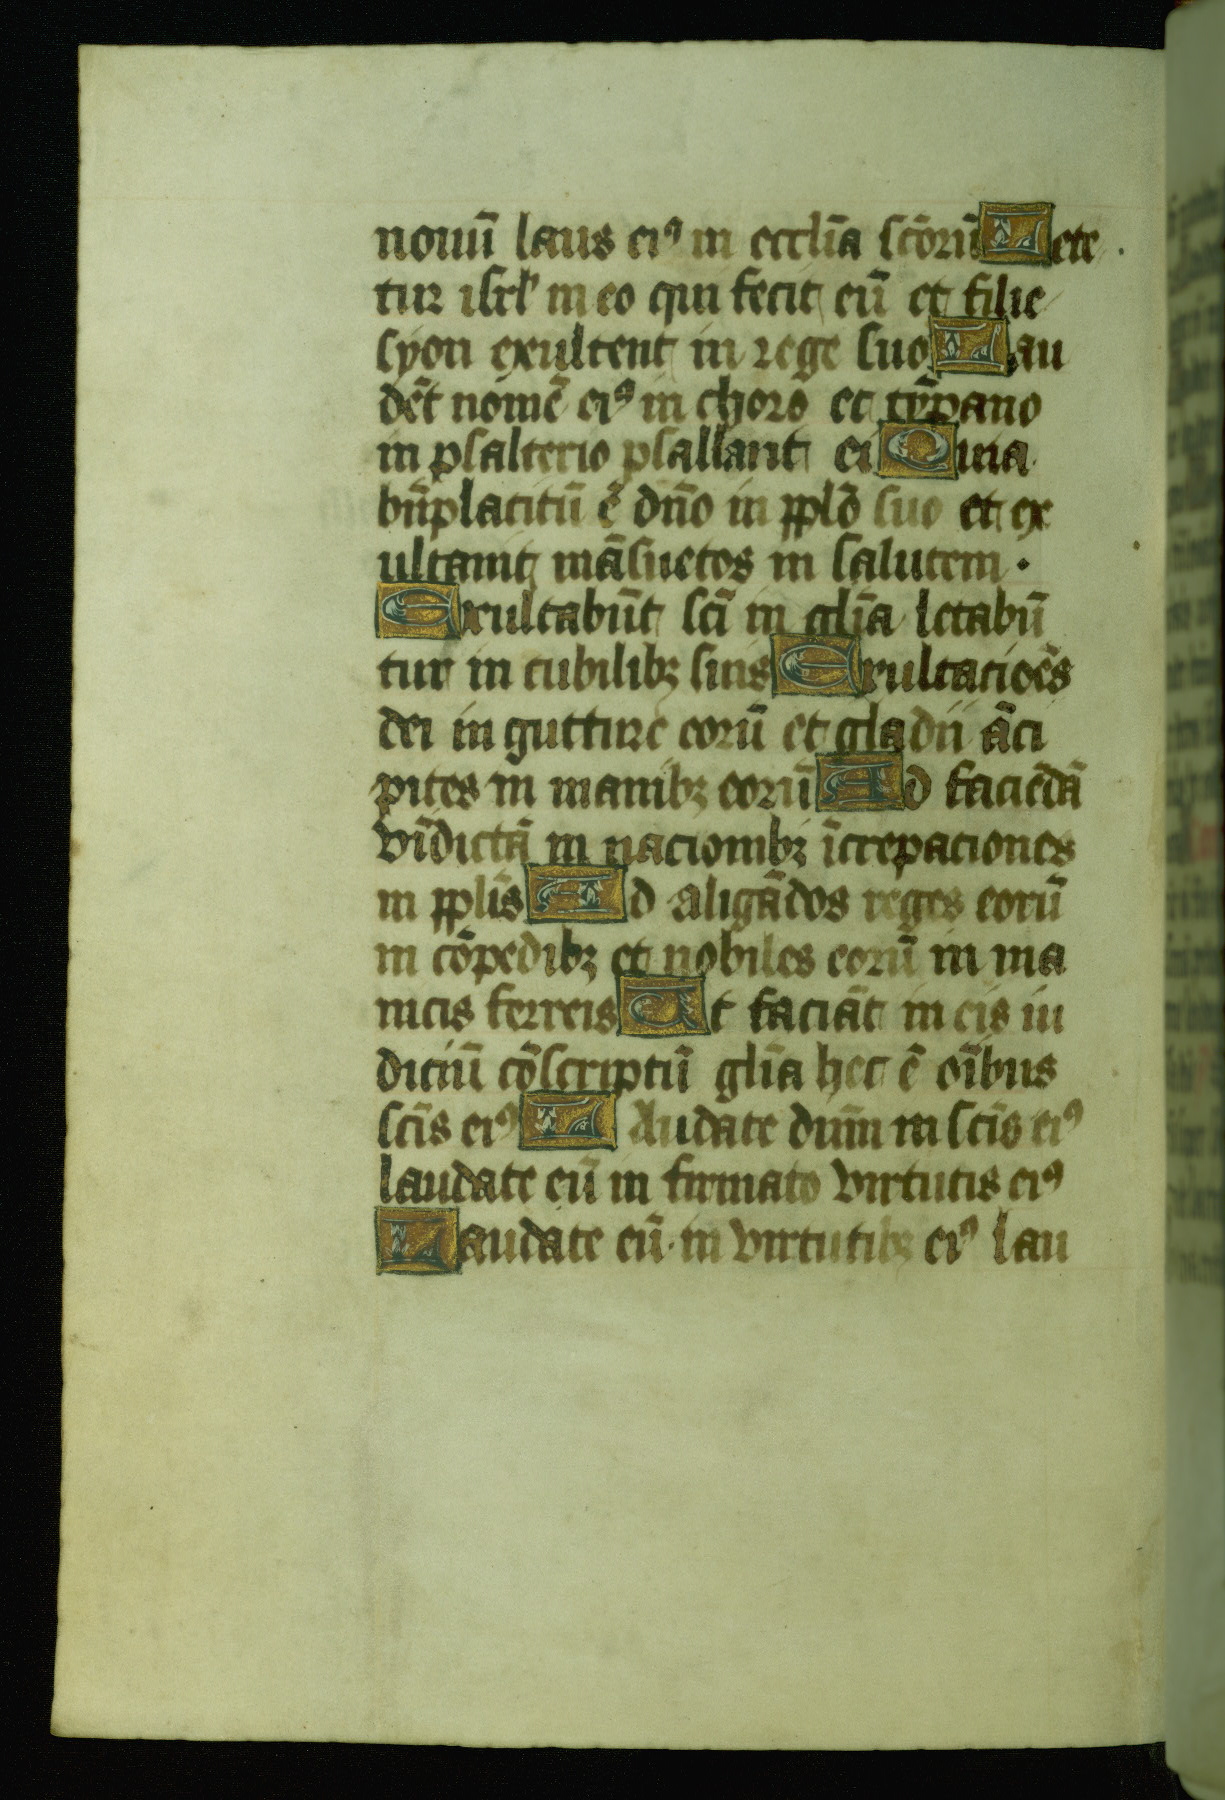 nouū laus eiꝰ in eccl̄ia sc̄orū Lete
tur isrl' in eo qui fecit eū et filie
syon exultent in rege suo Lau
dēt nomē eiꝰ in choro et tȳpano
in psalterio psallant ei Quia
bn̄placitū ē dn̄o in pp̄lo suo et ex
ultauit māsuetos in salutem .
Exultabūt sc̄i in gl̄ia letabū
tur in cubilibꝫ suis Exultacioēs
dei in gutture eorū et gladii āci
pites in manibꝫ eorū Ad faciēdā
vīdictā in nacionibꝫ īcrepaciones
in pp̄lis Ad aligādos reges eorū
in cōpedibꝫ et nobiles eorū in ma
nicis ferreis Ut faciāt in eis iu
diciū cōscriptū gl̄ia hec ē oībus
sc̄is eiꝰ Laudate dn̄m in sc̄is eiꝰ
laudate eū in firmato virtutis eiꝰ
Laudate eū in virtutibꝫ eiꝰ lau